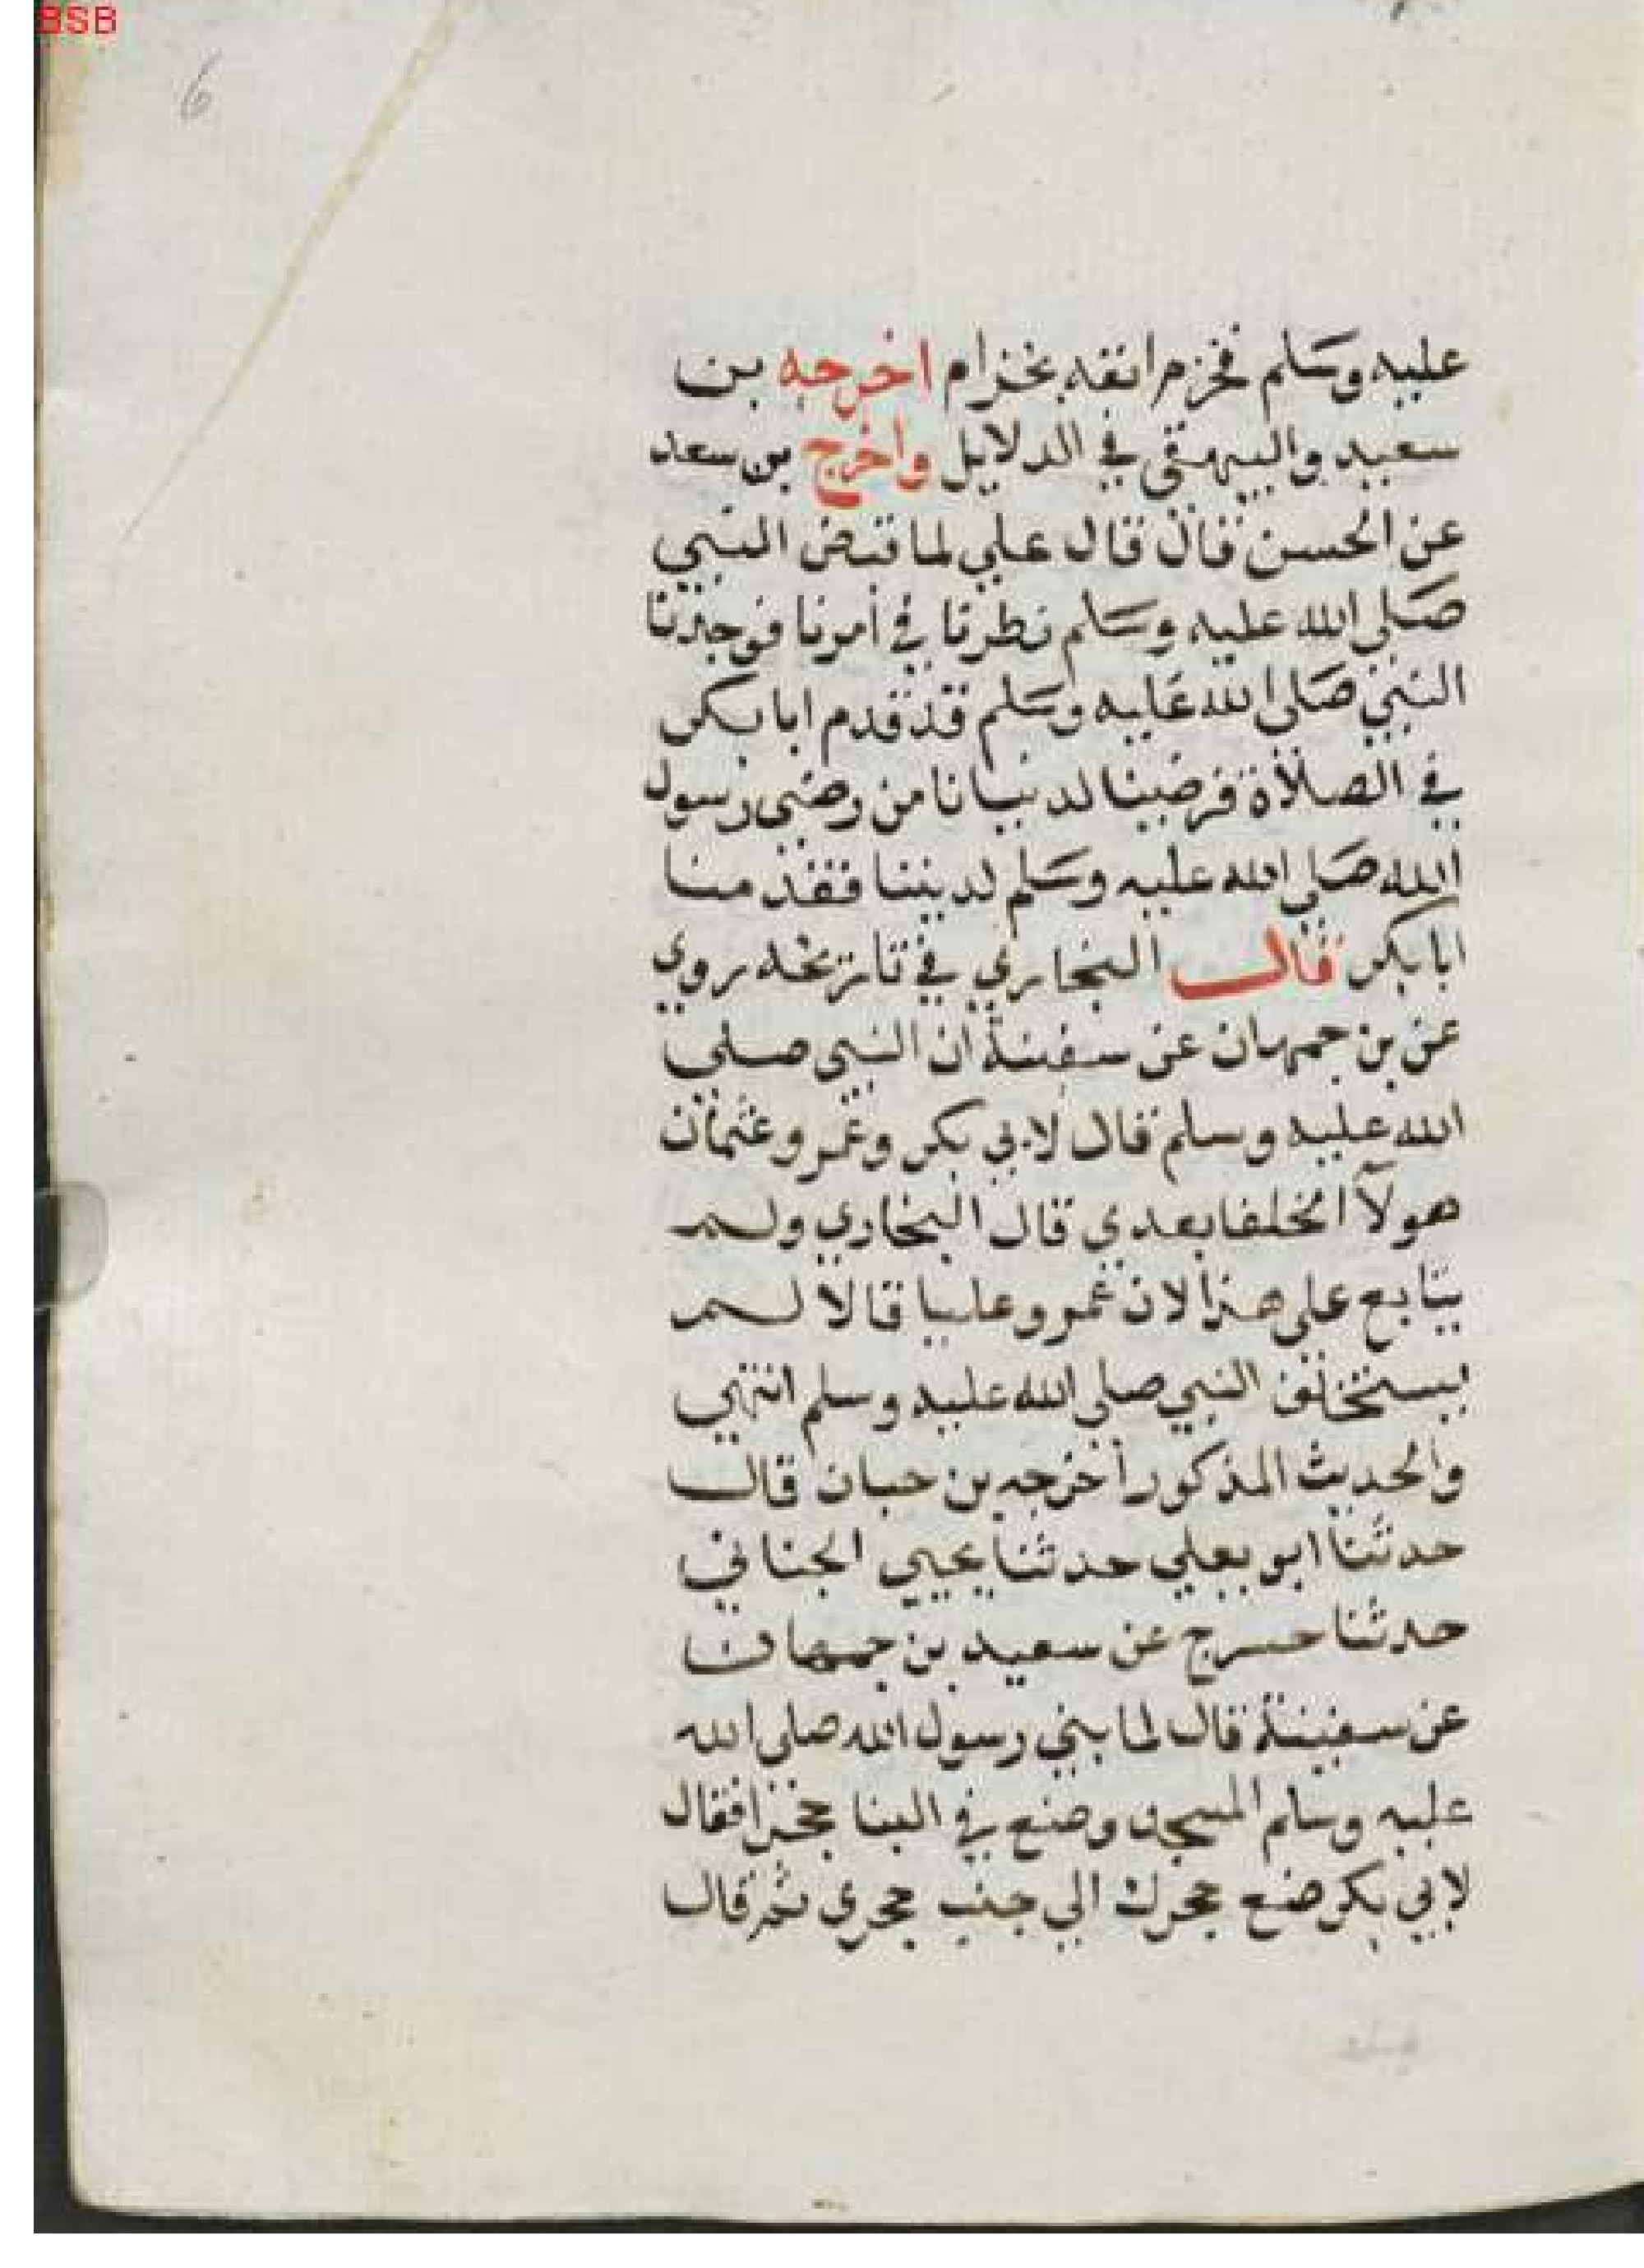 BSB
6
عليه وسلم فخزم انفه بخزام اخرجه بن
سعيد والبيهقي في الدلايل واخرج بن سعد
عن الحسن قال قال علي لما قبض النبي
صلى الله عليه وسلم نظرنا في امرنا فوجدنا
النبي صلى الله عليه وسلم قد قدم ابا بكر
في الصلاة فرضينا لدنيانا من رضي رسول
الله صلى الله عليه وسلم لديننا فقدمنا
ابا بكر قال البخاري في تاريخه روي
عن بن جمهان عن سفينة ان النبي صلى
الله عليه وسلم قال لابي بكر وعمر وعثمان
هولآ الخلفا بعدي قال البخاري ولم
يتابع على هذا لان عمر وعليا قالا لم
يستخلف النبي صلى الله عليه وسلم انتهي
والحديث المذكور اخرجه بن حبان قال
حدثنا ابو يعلي حدثنا يحيي الجناني
حدثنا حسرج عن سعيد بن جمهان
عن سفينة قال لما بني رسول الله صلى الله
عليه وسلم المسجد وضع في البنا حجرا فقال
لابي بكر ضع حجرك الي جنب حجري ثم قال